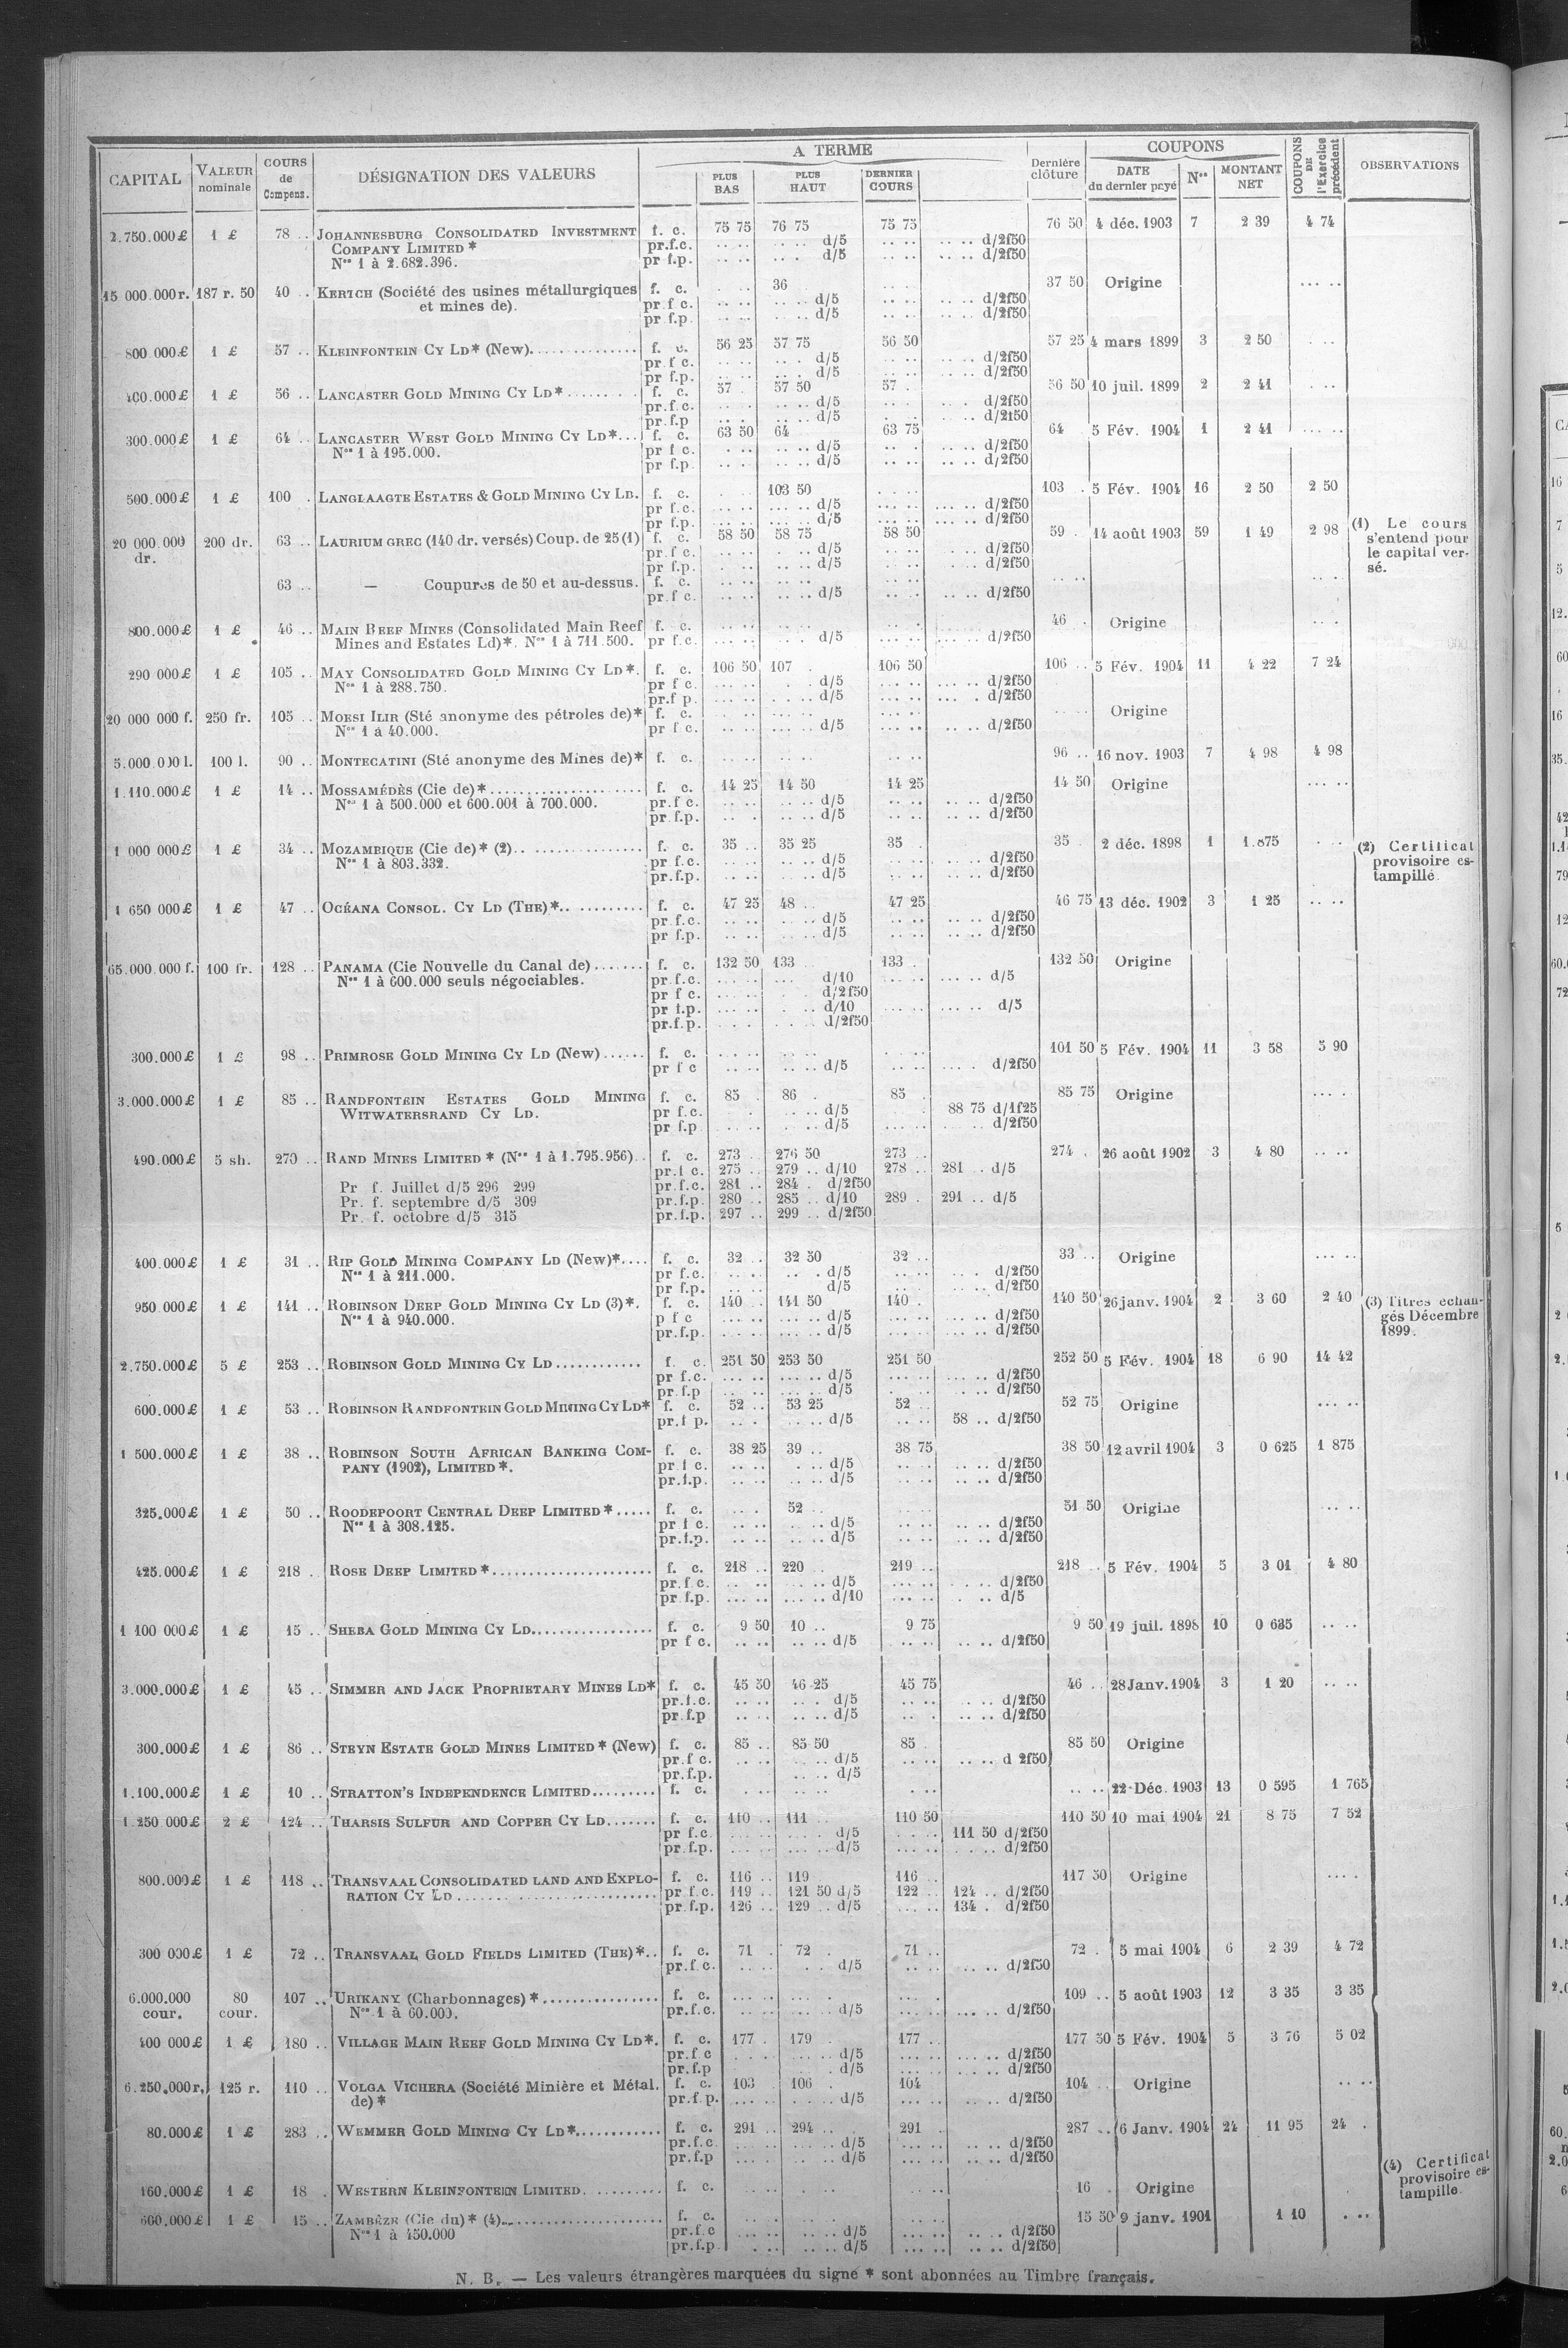 CAPITAL VALEUR nominale COURS de Compens. DÉSIGNATION DES VALEURS A TERME PLUS BAS PLUS HAUT DERNIER COURS Dernière clôture COUPONS DATE du dernier payé Nos MONTANT NET COUPONS DE l'Exercice précédent OBSERVATIONS
2.750.000£ 1 £ 78 .. JOHANNESBURG CONSOLIDATED INVESTMENT f. c. 75 75 76 75 75 75 76 50 4 déc. 1903 7 2 39 4 74
COMPANY LIMITED * pr.f.c. d/5 d/2f50
Nos 1 à 2.682.396. pr f.p. d/5 d/2f50
15 000.000r. 187 r. 50 40 .. KERTCH (Société des usines métallurgiques f. c. 36 37 50 Origine
et mines de). pr f c. d/5 d/2f50
pr f.p. d/5 d/2f50
800 000£ 1 £ 57 .. KLEINFONTEIN CY LD* (New) f. c. 56 25 57 75 56 50 57 25 4 mars 1899 3 2 50
pr f c. d/5 d/2f50
pr f.p. d/5 d/2f50
400.000£ 1 £ 56 .. LANCASTER GOLD MINING CY LD* f. c. 57 57 50 57 56 50 10 juil. 1899 2 2 41
pr.f.c. d/5 d/2f50
pr.f.p d/5 d/2f50
300.000£ 1 £ 64 .. LANCASTER WEST GOLD MINING CY LD*... f. c. 63 50 64 63 75 64 5 Fév. 1904 1 2 41
Nos 1 à 195.000. pr f c. d/5 d/2f50
pr f.p. d/5 d/2f50
500.000£ 1 £ 100 LANGLAAGTE ESTATES & GOLD MINING CY LD. f. c. 103 50 103 5 Fév. 1904 16 2 50 2 50
pr f.c. d/5 d/2f50
pr f.p. d/5 d/2f50
20 000.000 200 dr. 63 .. LAURIUM GREC (140 dr. versés) Coup. de 25 (1) f. c. 58 50 58 75 58 50 59 14 août 1903 59 1 49 2 98 (1) Le cours
dr. pr.f c. d/5 d/2f50 s'entend pour
pr f.p. d/5 d/2f50 le capital ver-
63 .. — Coupures de 50 et au-dessus. f. c. sé.
pr.f c. d/5 d/2f50
800.000£ 1 £ 46 .. MAIN REEF MINES (Consolidated Main Reef f. c. 46 Origine
Mines and Estates Ld)*. Nos 1 à 711.500. pr f.c. d/5 d/2f50
290 000£ 1 £ 105 .. MAY CONSOLIDATED GOLD MINING CY LD*. f. c. 106 50 107 106 50 106 .. 5 Fév. 1904 11 4 22 7 24
Nos 1 à 288.750. pr f c. d/5 d/2f50
pr.f p. d/5 d/2f50
20 000 000 f. 250 fr. 105 .. MORSI ILIR (Sté anonyme des pétroles de)* f. c. Origine
Nos 1 à 40.000. pr f c. d/5 d/2f50
5.000.000 l. 100 l. 90 .. MONTECATINI (Sté anonyme des Mines de)* f. c. 96 .. 16 nov. 1903 7 4 98 4 98
1.110.000£ 1 £ 14 .. MOSSAMÉDÈS (Cie de)* f. c. 14 25 14 50 14 25 14 50 Origine
Nos 1 à 500.000 et 600.001 à 700.000. pr.f c. d/5 d/2f50
pr f.p. d/5 d/2f50
1 000 000£ 1 £ 34 .. MOZAMBIQUE (Cie de)* (2) f. c. 35 .. 35 25 35 35 2 déc. 1898 1 1.875 (2) Certificat
Nos 1 à 803.332. pr f.c. d/5 d/2f50 provisoire es-
pr.f.p. d/5 d/2f50 tampillé.
1 650 000£ 1 £ 47 .. OCÉANA CONSOL. CY LD (THE)* f. c. 47 25 48 .. 47 25 46 75 13 déc. 1902 3 1 25
pr f.c. d/5 d/2f50
pr f.p. d/5 d/2f50
65.000.000 f. 100 fr. 128 .. PANAMA (Cie Nouvelle du Canal de) f. c. 132 50 133 133 132 50 Origine
Nos 1 à 600.000 seuls négociables. pr.f.c. d/10 d/5
pr f c. d/2f50
pr f.p. d/10 d/5
pr.f.p. d/2f50
300.000£ 1 £ 98 .. PRIMROSE GOLD MINING CY LD (New) f. c. 101 50 5 Fév. 1904 11 3 58 5 90
pr f c d/5 d/2f50
3.000.000£ 1 £ 85 .. RANDFONTEIN ESTATES GOLD MINING f. c. 85 86 85 85 75 Origine
WITWATERSRAND CY LD. pr f.c. d/5 88 75 d/1f25
pr f.p d/5 d/2f50
490.000£ 5 sh. 270 .. RAND MINES LIMITED * (Nos 1 à 1.795.956) f. c. 273 .. 276 50 273 .. 274 26 août 1902 3 4 80
pr.f c. 275 .. 279 .. d/10 278 .. 281 .. d/5
Pr f. Juillet d/5 296 299 pr.f.c. 281 .. 284 d/2f50
Pr. f. septembre d/5 309 pr.f.p. 280 .. 285 .. d/10 289 291 .. d/5
Pr. f. octobre d/5 315 pr.f.p. 297 .. 299 .. d/2f50
400.000£ 1 £ 31 .. RIP GOLD MINING COMPANY LD (New)*.... f. c. 32 .. 32 50 32 .. 33 .. Origine
Nos 1 à 211.000. pr f.c. d/5 d/2f50
pr f.p. d/5 d/2f50
950.000£ 1 £ 141 .. ROBINSON DEEP GOLD MINING CY LD (3)*. f. c. 140 141 50 140 140 50 26 janv. 1904 2 3 60 2 40 (3) Titres echan-
Nos 1 à 940.000. p f c d/5 d/2f50 gés Décembre
pr.f.p. d/5 d/2f50 1899.
2.750.000£ 5 £ 253 .. ROBINSON GOLD MINING CY LD f. c. 251 50 253 50 251 50 252 50 5 Fév. 1904 18 6 90 14 42
pr f.c. d/5 d/2f50
pr.f.p d/5 d/2f50
600.000£ 1 £ 53 .. ROBINSON RANDFONTEIN GOLD MINING CY LD* f. c. 52 .. 53 25 52 .. 52 75 Origine
pr.f p. d/5 58 .. d/2f50
1 500.000£ 1 £ 38 .. ROBINSON SOUTH AFRICAN BANKING COM- f. c. 38 25 39 .. 38 75 38 50 12 avril 1904 3 0 625 1 875
PANY (1902), LIMITED*. pr f c. d/5 d/2f50
pr.f.p. d/5 d/2f50
325.000£ 1 £ 50 .. ROODEPOORT CENTRAL DEEP LIMITED* f. c. 52 51 50 Origine
Nos 1 à 308.125. pr f c. d/5 d/2f50
pr.f.p. d/5 d/2f50
425.000£ 1 £ 218 ROSE DEEP LIMITED* f. c. 218 .. 220 219 .. 218 .. 5 Fév. 1904 5 3 01 4 80
pr.f c. d/5 d/2f50
pr f.p. d/10 d/5
1 100 000£ 1 £ 15 .. SHEBA GOLD MINING CY LD f. c. 9 50 10 .. 9 75 9 50 19 juil. 1898 10 0 635
pr f c. d/5 d/2f50
3.000.000£ 1 £ 45 .. SIMMER AND JACK PROPRIETARY MINES LD* f. c. 45 50 46 25 45 75 46 .. 28 Janv. 1904 3 1 20
pr.f.c. d/5 d/2f50
pr f.p d/5 d/2f50
300.000£ 1 £ 86 .. STEYN ESTATE GOLD MINES LIMITED* (New) f. c. 85 .. 85 50 85 85 50 Origine
pr.f c. d/5 d 2f50
pr.f.p. d/5
1.100.000£ 1 £ 10 .. STRATTON'S INDEPENDENCE LIMITED f. c. 22 Déc. 1903 13 0 595 1 765
1.250 000£ 2 £ 124 .. THARSIS SULFUR AND COPPER CY LD f. c. 110 .. 111 110 50 110 50 10 mai 1904 21 8 75 7 52
pr f.c. d/5 111 50 d/2f50
pr f.p. d/5 d/2f50
800.000£ 1 £ 118 .. TRANSVAAL CONSOLIDATED LAND AND EXPLO- f. c. 116 .. 119 116 .. 117 50 Origine
RATION CY LD pr f.c. 119 .. 121 50 d/5 122 .. 124 .. d/2f50
pr.f.p. 126 .. 129 .. d/5 134 d/2f50
300 000£ 1 £ 72 .. TRANSVAAL GOLD FIELDS LIMITED (THE)*.. f. c. 71 72 71 .. 72 5 mai 1904 6 2 39 4 72
pr.f c. d/5 d/2f50
6.000.000 80 107 .. URIKANY (Charbonnages)* f. c. 109 .. 5 août 1903 12 3 35 3 35
cour. cour. Nos 1 à 60.000. pr.f.c. d/5 d/2f50
400 000£ 1 £ 180 .. VILLAGE MAIN REEF GOLD MINING CY LD*. f. c. 177 179 177 .. 177 50 5 Fév. 1904 5 3 76 5 02
pr.f c d/5 d/2f50
pr.f.p d/5 d/2f50
6.250.000r. 125 r. 110 .. VOLGA VICHERA (Société Minière et Métal. f. c. 103 106 104 104 Origine
de)* pr.f.p. d/5 d/2f50
80.000£ 1 £ 283 .. WEMMER GOLD MINING CY LD* f. c. 291 .. 294 .. 291 287 .. 6 Janv. 1904 24 11 95 24
pr.f.c. d/5 d/2f50
pr.f.p d/5 d/2f50 (4) Certificat
160.000£ 1 £ 18 WESTERN KLEINFONTEIN LIMITED f. c. 16 Origine provisoire es-
tampillé.
600.000£ 1 £ 15 .. ZAMBÈZE (Cie du)* (4) f. c. 15 50 9 janv. 1901 1 10
Nos 1 à 450.000 pr.f.c d/5 d/2f50
pr.f.p d/5 d/2f50
N. B. — Les valeurs étrangères marquées du signe * sont abonnées au Timbre français.